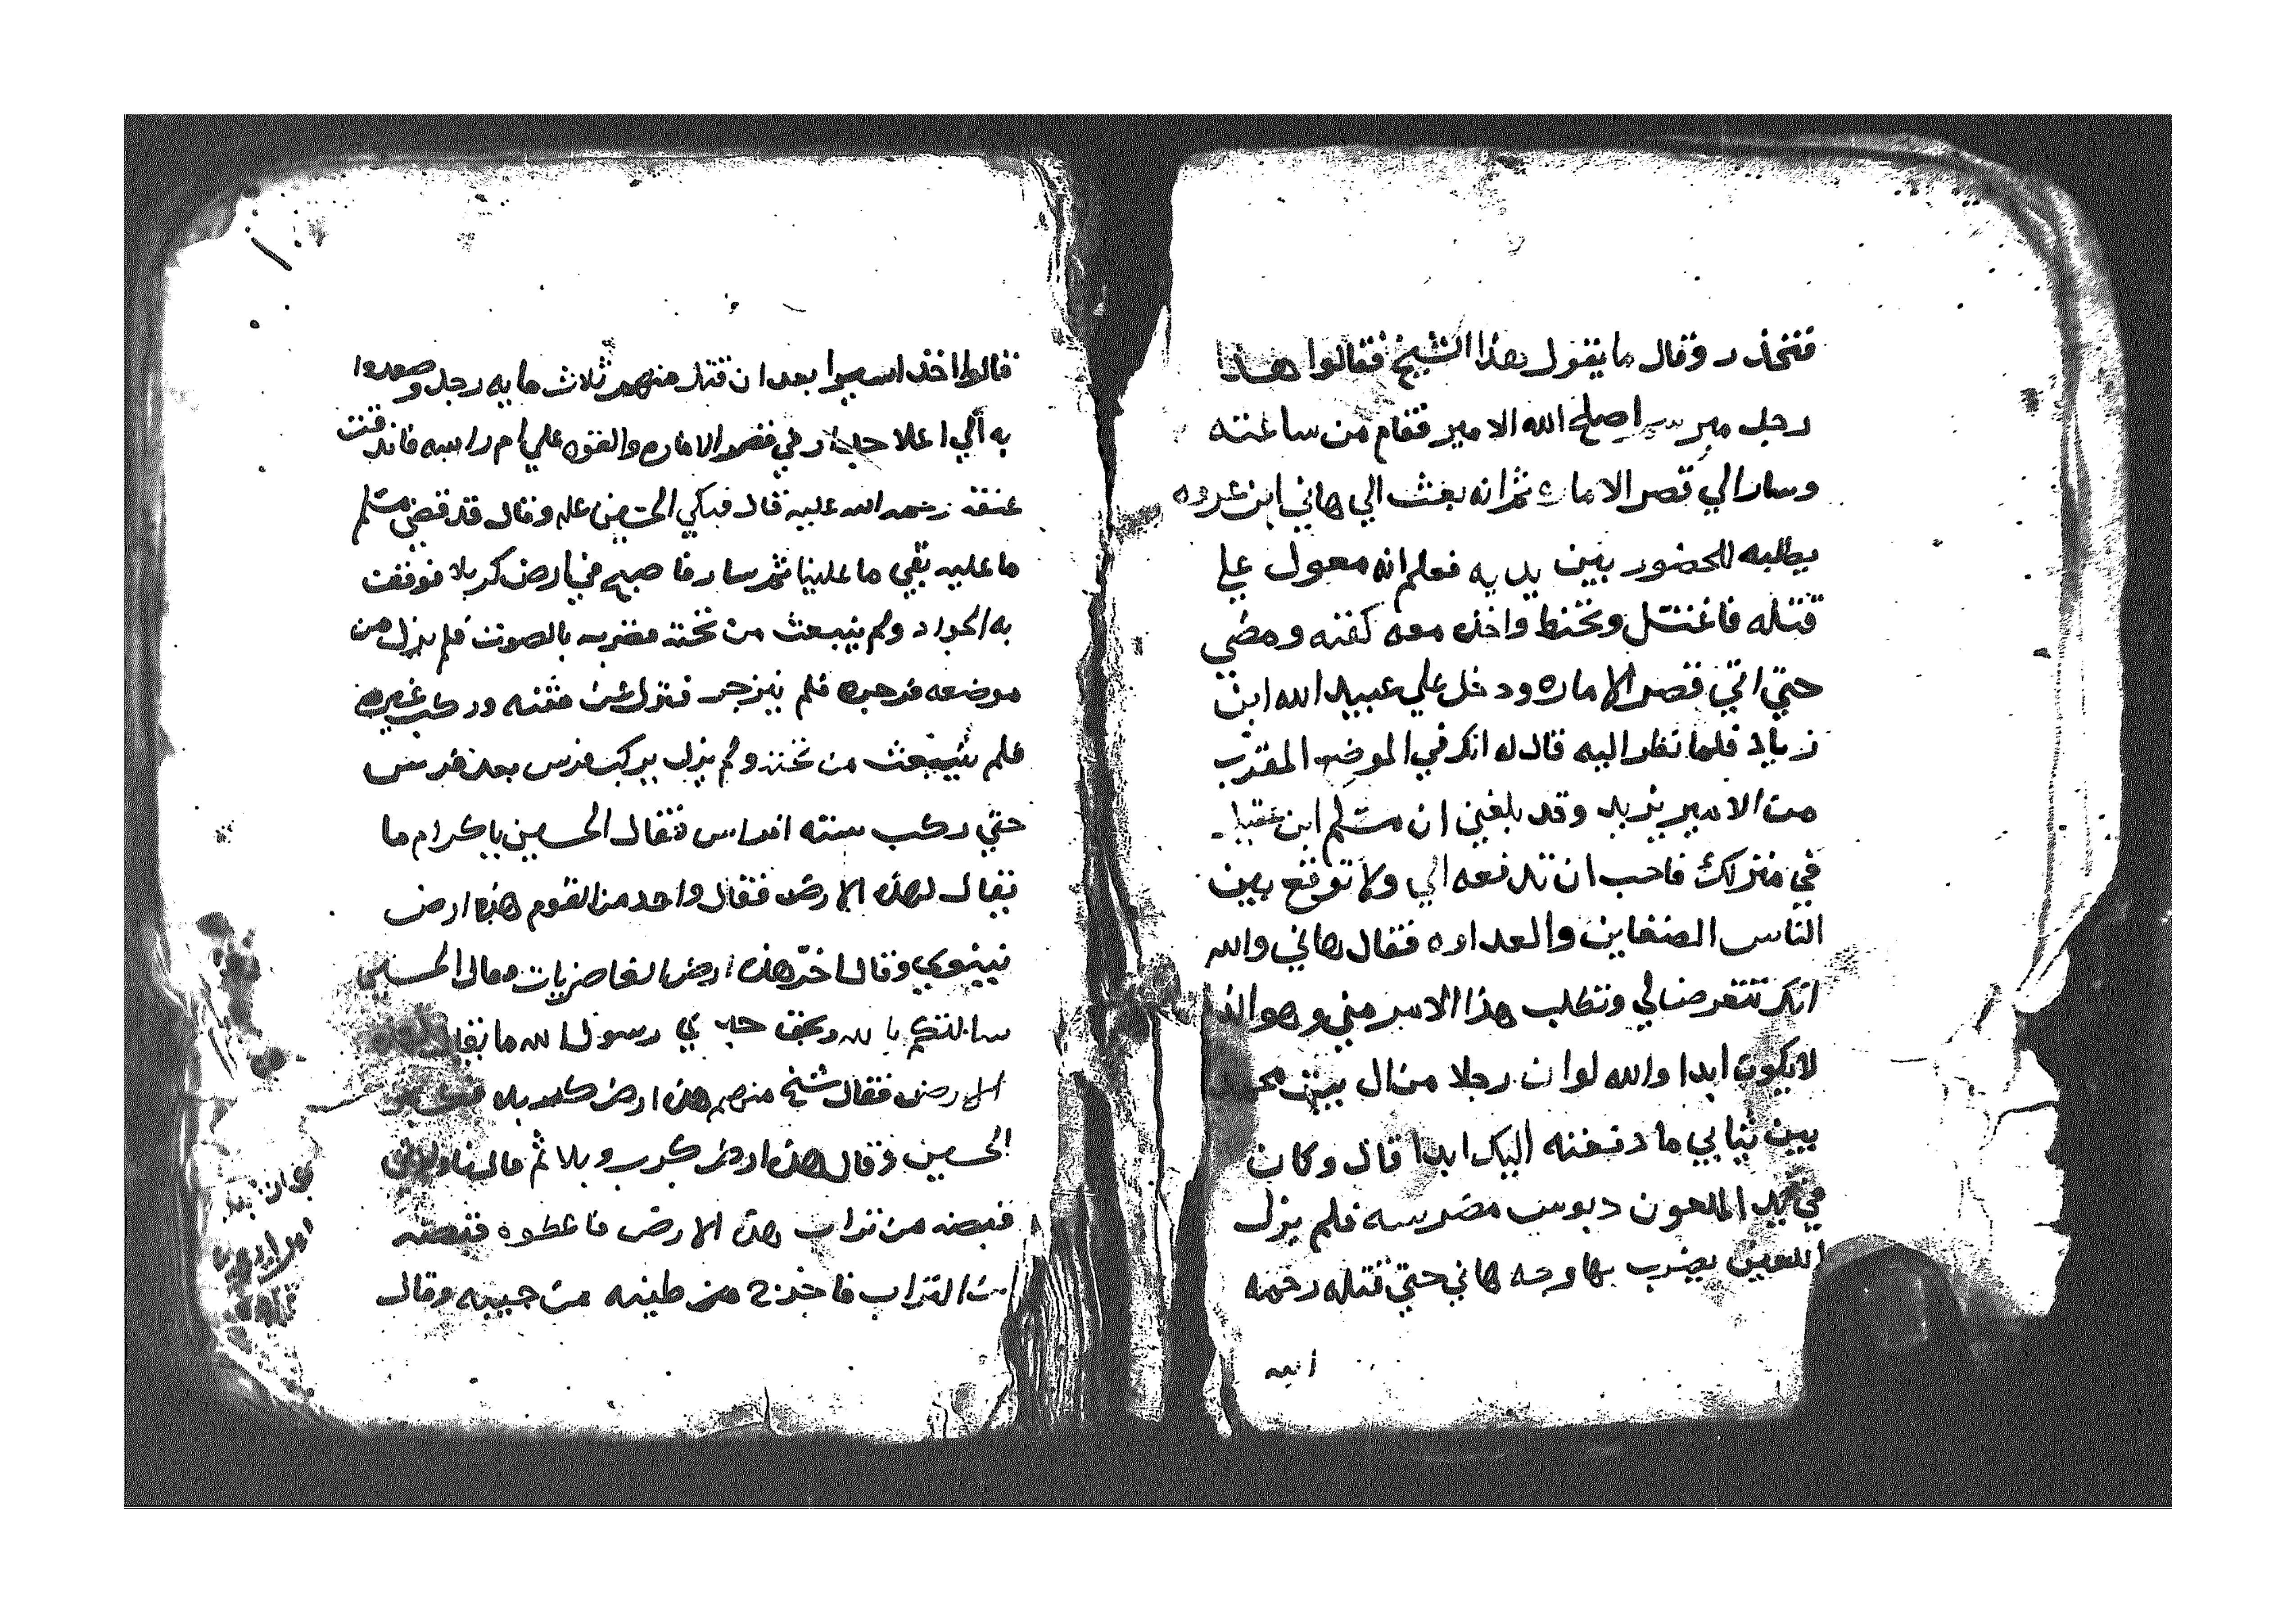 فتخذر وقال ما يقول هذا الشيخ فقالوا هذا
رجل اصلح الله الامير فقام من ساعته
وسار الي قصر الاماره ثم انه بعث الي هاني ابن عروه
يطلبه للحضور بين يديه فعلم انه معول علي
قتله فاغتسل وتحنط واخذ معه كفنه ومضي
حتي اتي قصر الاماره ودخل علي عبيد الله ابن
زياد فلما نظر اليه قال له انك في الموضع المقرب
من الامير يزيد وقد بلغني ان مسلم ابن عقيل
في منزلك فاحب ان تدفعه الي ولا توقع بين
الناس الضغاين والعداوه فقال هاني والله
انك تتعرض لي وتطلب هذا الامر مني وهو
لا يكون ابدا والله لو ان رجلا من ال بيت محمد
بين ثيابي ما دفعته اليك ابدا قال وكان
في يد الملعون دبوس فلم يزل
اللعين يضرب بها وجه هاني حتي قتله رحمه
الله
فقالوا اخذ اسيرا بعد ان قتل منهم ثلاث مايه رجل وصعدوا
به الي اعلا في قصر الاماره والقوه علي ام راسه فاندقت
عنقه رحمه الله عليه قال فبكي الحسين عليه وقال قد قضي مسلم
ما عليه بقي ما علينا ثم سار فاصبح في ارض كربلا فوقفت
به الجواد ولم ينبعث من تحته فضربه بالصوت فلم يزل من
موضعه فزجره فلم ينزجر فنزل عن متنه وركب غيره
فلم ينبعث من تحته ولم يزل يركب فرس بعد فرس
حتي ركب سته افراس فقال الحسين يا كرام ما
يقال لهذه الارض فقال واحد من القوم هذه ارض
نينوي وقال اخر هذه ارض الغاضريات فقال الحسين
سالتكم بالله وبحق جدي رسول الله ما يقال
الارض فقال شيخ منهم هذه ارض كربلا
الحسين وقال هذه ارض كرب وبلا ثم قال ناولوني
قبضه من تراب هذه الارض فاعطوه قبضه
من التراب فاخرج من طينه من جيبه وقال